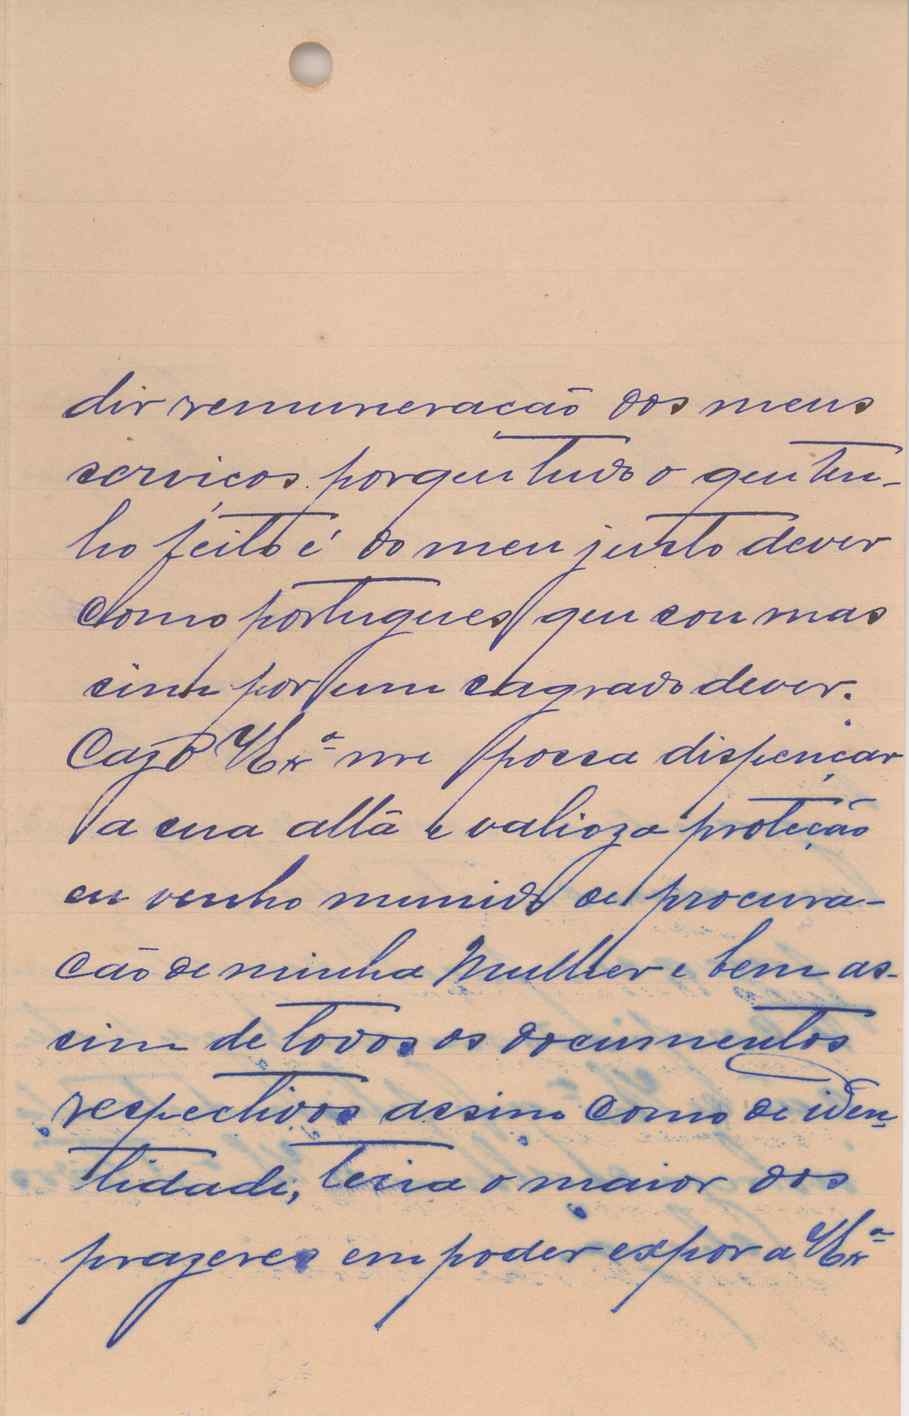 dir remuneração dos meus
serviços. porque tudo o que ten-
ho feito é do meu justo dever
como portugues que sou mas
sim por um sagrado dever.
Cazo V Exª me possa dispençar
a sua altã e valioza proteção
eu venho munido de procura-
cão de minha Mulher e bem as-
sim de todos os documentos
respectivos assim como de iden
tidade, teria o maior dos
prazeres em poder expor a V Exª